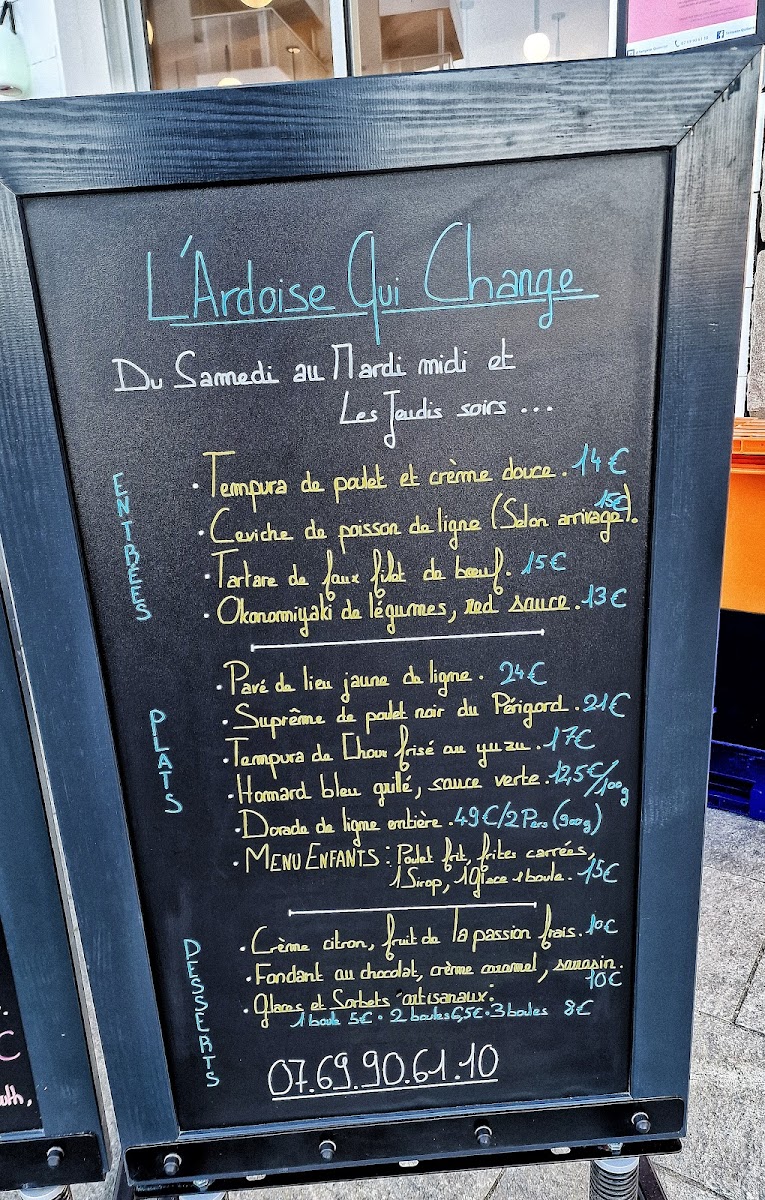 L'Ardoise Qui Change
Du Samedi au Mardi midi et
Les Jeudis soirs ...
ENTREES
· Tempura de poulet et crème douce. 14€
· Ceviche de poisson de ligne (Selon arrivage). 15€
· Tartare de faux filet de bœuf. 15€
· Okonomiyaki de légumes, red sauce. 13€
PLATS
· Pavé de lieu jaune de ligne. 24€
· Suprême de poulet noir du Périgord. 21€
· Tempura de Choux frisé au yuzu. 17€
· Homard bleu grillé, sauce verte. 12,5€/100g
· Dorade de ligne entière. 49€/2Pers (900g)
· MENU ENFANTS : Poulet frit, frites carrées,
1 Sirop, 1 Glace 1 boule. 15€
DESSERTS
· Crème citron, fruit de la passion frais. 10€
· Fondant au chocolat, crème caramel, sarrasin.
10€
· Glaces et Sorbets artisanaux:
1 boule 5€ · 2 boules 6,5€ · 3 boules 8€
07.69.90.61.10